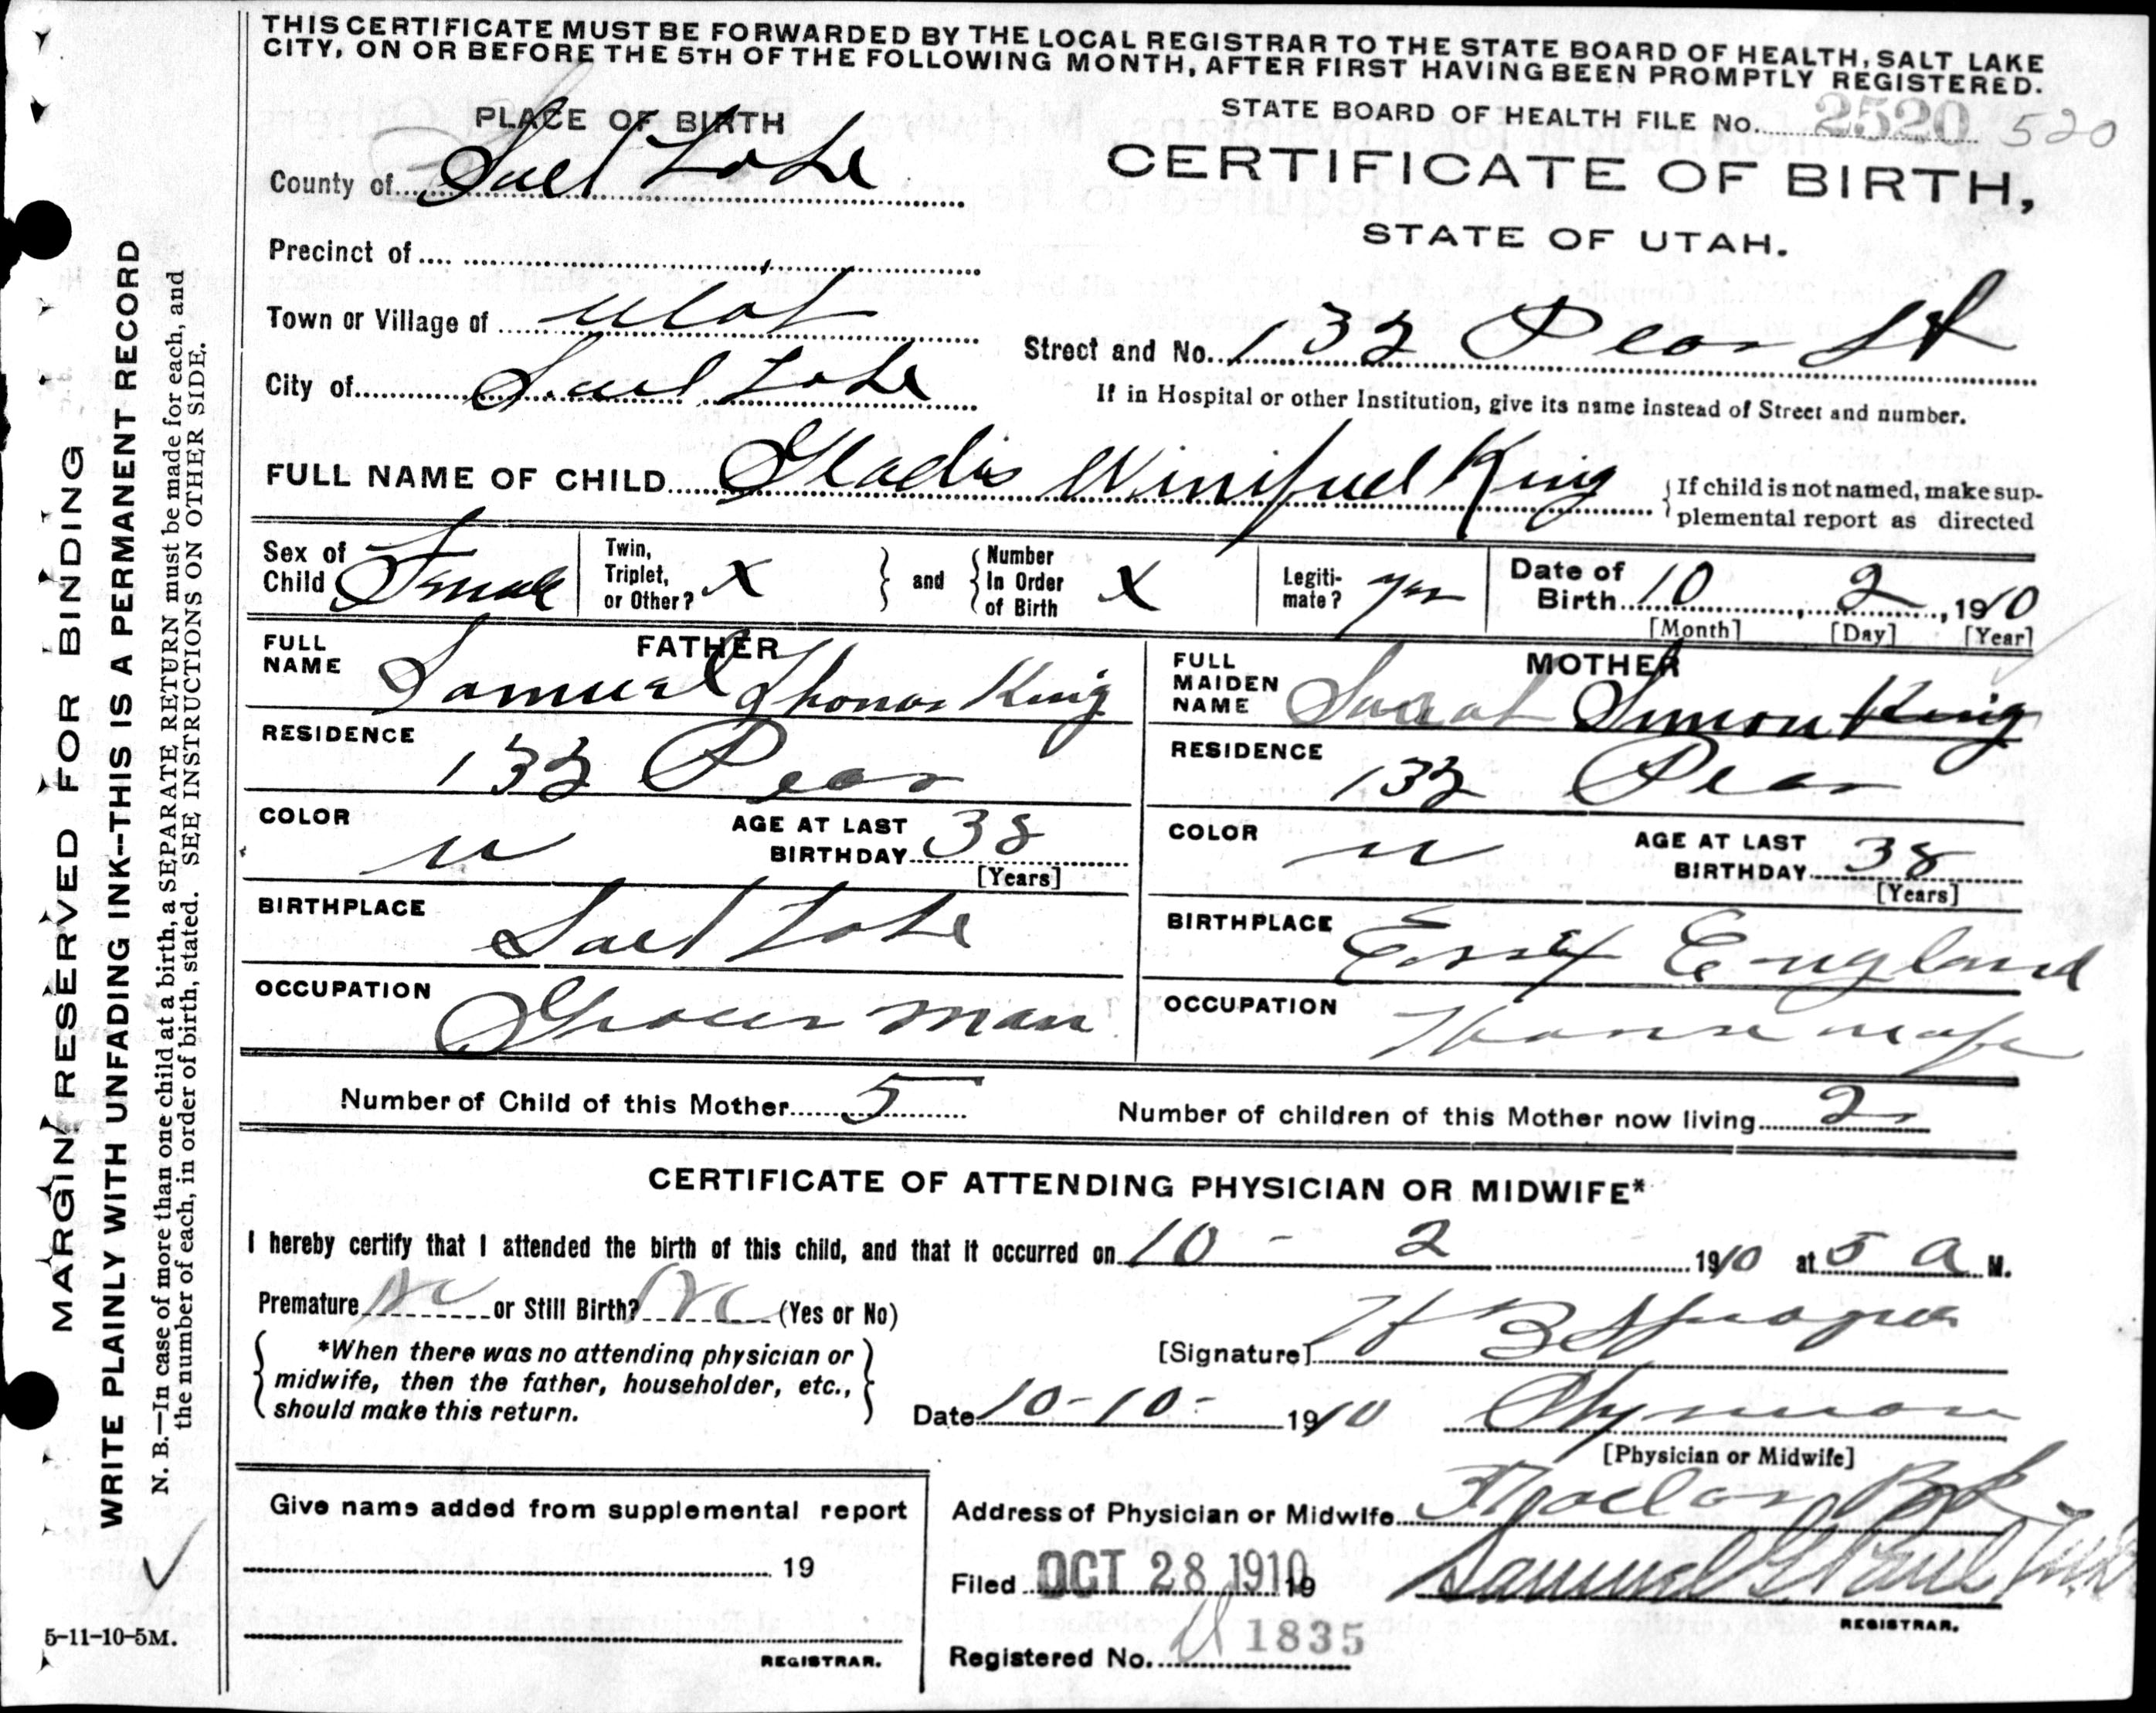 THIS CERTIFICATE MUST BE FORWARDED BY THE LOCAL REGISTRAR TO THE STATE BOARD OF HEALTH, SALT LAKE
CITY, ON OR BEFORE THE 5TH OF THE FOLLOWING MONTH, AFTER FIRST HAVING BEEN PROMPTLY REGISTERED.
STATE BOARD OF HEALTH FILE No. 2520 520
PLACE OF BIRTH
CERTIFICATE OF BIRTH,
STATE OF UTAH.
County of Salt Lake
Precinct of
Town or Village of Utah
City of Salt Lake
Street and No. 132 Pear St
If in Hospital or other Institution, give its name instead of Street and number.
FULL NAME OF CHILD Gladis Winifred King
If child is not named, make sup-
plemental report as directed
Sex of Child Female
Twin, Triplet, or Other? X
and Number In Order of Birth X
Legiti-mate? Yes
Date of Birth 10, 2, 1910
[Month] [Day] [Year]
FATHER
FULL NAME Samuel Thomas King
RESIDENCE 132 Pear
COLOR W
AGE AT LAST BIRTHDAY 38
[Years]
BIRTHPLACE Salt Lake
OCCUPATION Grocer man
MOTHER
FULL MAIDEN NAME Sarah Simon King
RESIDENCE 132 Pear
COLOR W
AGE AT LAST BIRTHDAY 38
[Years]
BIRTHPLACE Essex England
OCCUPATION House wife
Number of Child of this Mother 5
Number of children of this Mother now living 2
CERTIFICATE OF ATTENDING PHYSICIAN OR MIDWIFE*
I hereby certify that I attended the birth of this child, and that it occurred on 10 - 2 1910 at 5 a M.
Premature No or Still Birth? No (Yes or No)
*When there was no attending physician or
midwife, then the father, householder, etc.,
should make this return.
[Signature] H B Sprague
Date 10-10- 1910
Physician
[Physician or Midwife]
Address of Physician or Midwife
Give name added from supplemental report
19
REGISTRAR.
Filed OCT 28 1910 19
Samuel G Paul
REGISTRAR.
Registered No. 1835
MARGIN RESERVED FOR BINDING
WRITE PLAINLY WITH UNFADING INK--THIS IS A PERMANENT RECORD
N. B.—In case of more than one child at a birth, a SEPARATE RETURN must be made for each, and
the number of each, in order of birth, stated. SEE INSTRUCTIONS ON OTHER SIDE.
5-11-10-5M.